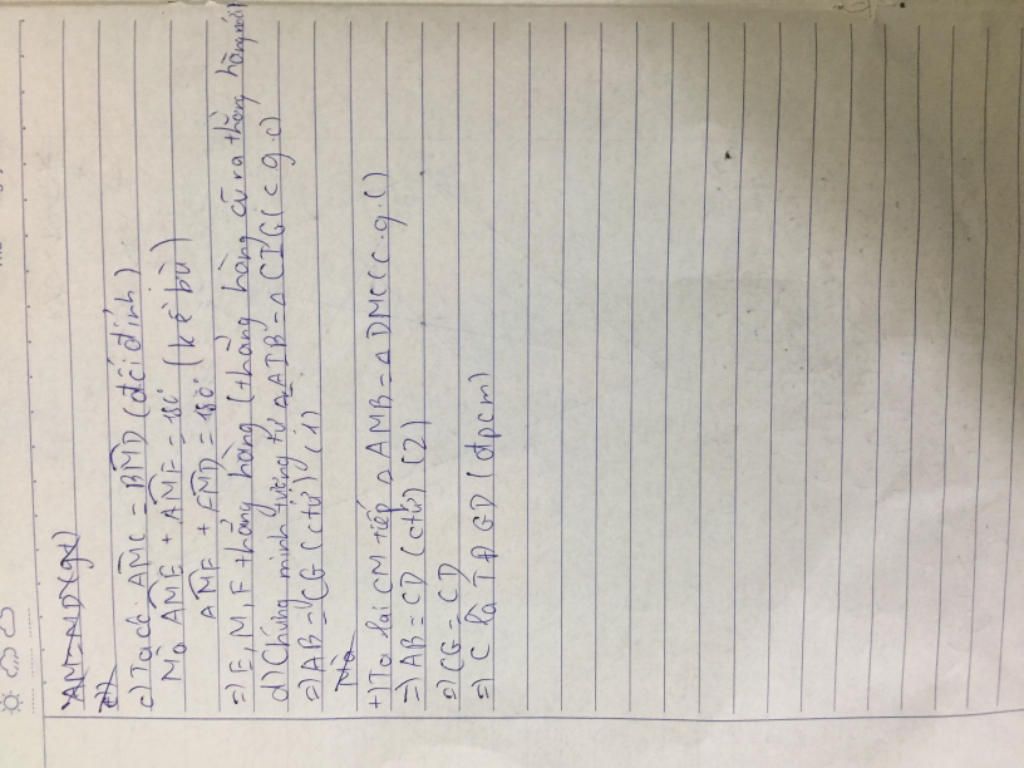 AM = MD (gt)
c)
c) Ta có: AMC = BMD (đối đỉnh)
Mà AME + AMF = 180°
AMF + FMD = 180° (kề bù)
=) E, M, F thẳng hàng (thẳng hàng cũ ra thẳng hàng mới)
d) Chứng minh tương tự ∆ AIB = ∆ CIG (c g.c)
=) AB = CG (ctứ) (1)
Mà
+) Ta lại CM tiếp ∆ AMB = ∆ DMC (c.g.c)
=) AB = CD (ctứ) (2)
=) CG = CD
=) C là T Đ GD (đpcm)